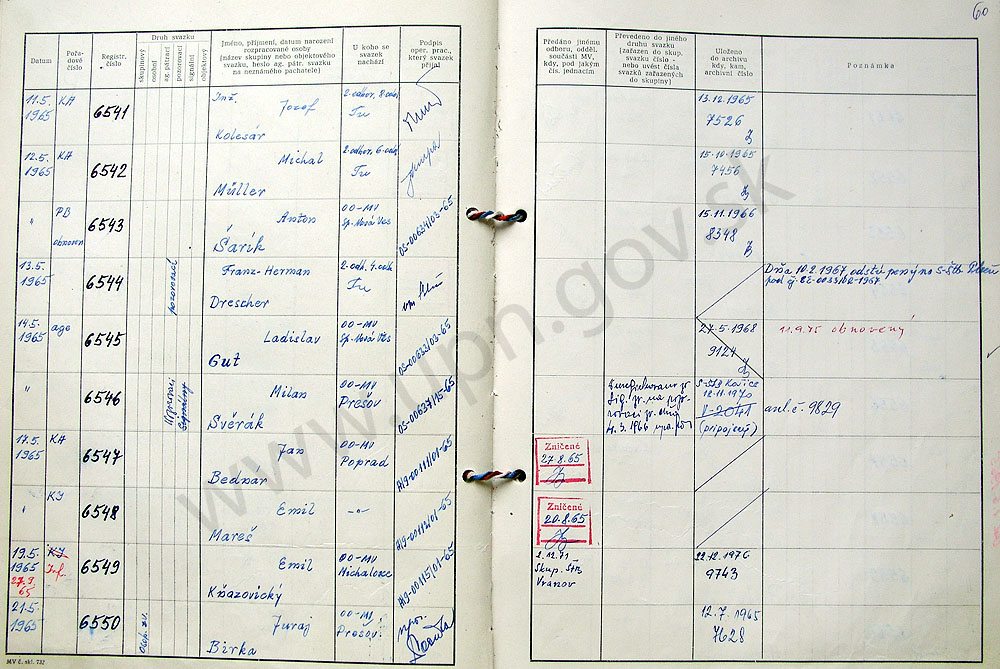 60
Datum
Pořa-
dové
číslo
Registr.
číslo
Druh svazku
skupinový
osobní
ag. pátrací
pozorovací
signální
objektový
Jméno, příjmení, datum narození
rozpracované osoby
(název skupiny nebo objektového
svazku, heslo ag. pátr. svazku
na neznámého pachatele)
U koho se
svazek
nachází
Podpis
oper. prac.,
který svazek
přijal
Předáno jinému
odboru, odděl.
součásti MV,
kdy, pod jakým
čís. jednacím
Převedeno do jiného
druhu svazku
(zařazen do skup.
svazku číslo -
nebo uvést čísla
svazků zařazených
do skupiny)
Uloženo
do archivu
kdy, kam,
archivní číslo
Poznámka
11.5.
1965
KA
6541
Inž.
Jozef
Kolesár
2. odbor, 8. odd.
Tu
13.12.1965
7526
12.5.
1965
KA
6542
Michal
Müller
2. odbor, 6. odd.
Tu
15.10.1965
7456
"
PB
obnoven
6543
Anton
Šarík
OO-MV
Sp. Nová Ves
OS-00634/03-65
15.11.1966
8348
13.5.
1965
6544
pozorovací
Franz-Herman
Drescher
2. odb. 4. odd.
Tu
Dňa 10.2.1967 odstúpený na S-ŠtB Plzeň
14.5.
1965
ago
6545
Ladislav
Guť
OO-MV
Sp. Nová Ves
OS-00633/03-65
27.5.1968
9124
11.9.75 obnovený
"
6546
Signálny
Milan
Švěrák
OO-MV
Prešov
OS-00637/15-65
4.3.1966
S-ŠtB Košice
12.11.1970
V-2041
(pripojený)
arch. č. 9829
17.5.
1965
KA
6547
Ján
Bednár
OO-MV
Poprad
A/9-00111/01-65
Zničené
27.8.65
"
KI
6548
Emil
Mareš
-"-
A/9-00112/01-65
Zničené
20.8.65
19.5.
1965
27.9.
65
KI
Inf.
6549
Emil
Kňazovický
OO-MV
Michalovce
A/9-00115/01-65
2.12.71
Skup. ŠtB
Vranov
22.12.1976
9743
21.5.
1965
6550
Osob. zv.
Juraj
Birka
OO-MV
Prešov
npor.
12.7.1965
7628
MV č. skl. 732
www.upn.gov.sk